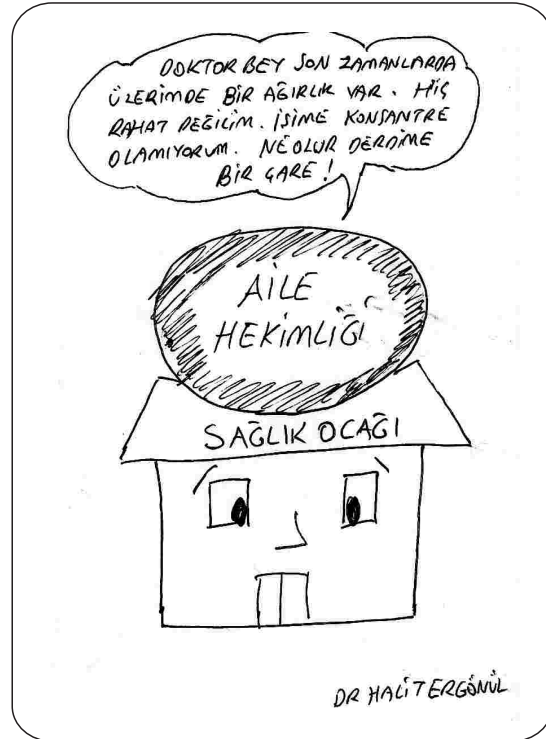 DOKTOR BEY SON ZAMANLARDA
ÜZERİMDE BİR AĞIRLIK VAR. HİÇ
RAHAT DEĞİLİM. İŞİME KONSANTRE
OLAMIYORUM. NEOLUR DERDİME
BİR ÇARE!
AİLE
HEKİMLİĞİ
SAĞLIK OCAĞI
DR HALİT ERGÖNÜL